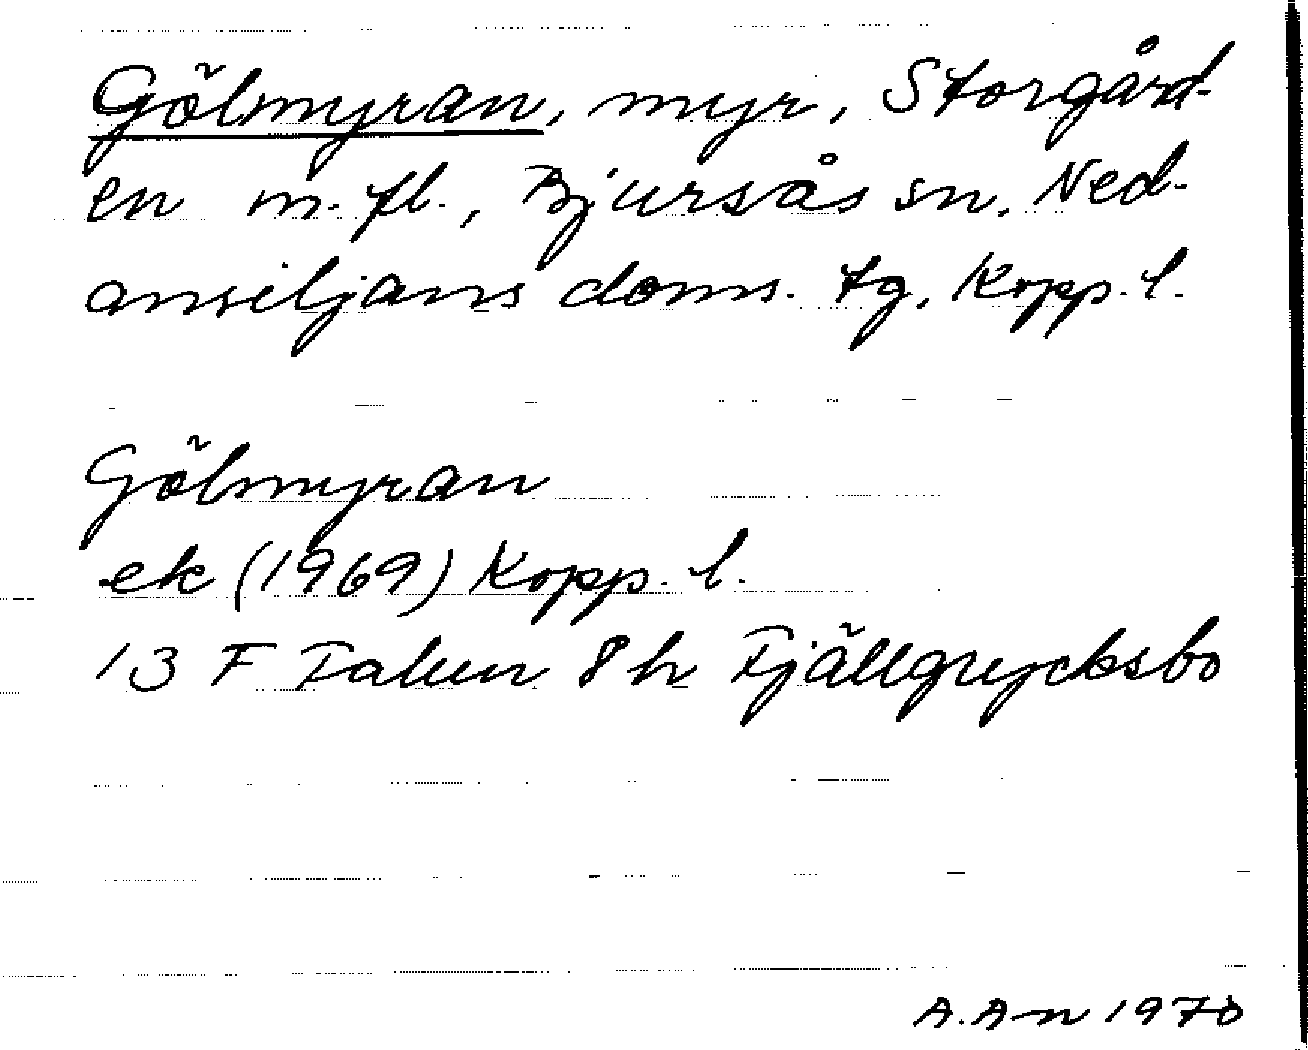 Gölmyran, myr, Storgård-
en m.fl., Bjursås sn. Ned-
ansiljans doms. tg, Kopp. l.
Gölmyran
ek (1969) Kopp. l.
13 F Falun 8 h Fjällgrycksbo
A.An 1970